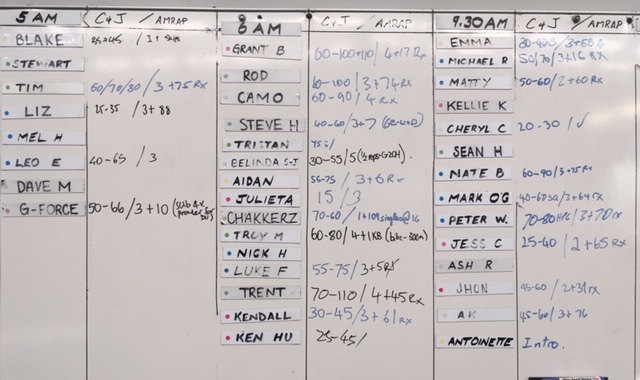 5 AM C & J / AMRAP
BLAKE / 3 +
STEWART
TIM 60/70/80 / 3 +75 Rx
LIZ 25-35 / 3 + 88
MEL H
LEO E 40-65 / 3
DAVE M
G-FORCE 50-60 / 3 + 10
6 AM C & J / AMRAP
GRANT B 60-100+110 / 4+17 Rx
ROD 60-100 / 3+74 Rx
CAMO 60-90 / 4 Rx
STEVE H 40-60 / 3+7
TRISTAN
BELINDA S-J 30-55 / 5
AIDAN 55-75 / 3+6 Rx
JULIETA 15 / 3
CHAKKERZ 70-60 /
TROY M 60-80 / 4+1KB (bike-300m)
NICK H
LUKE F 55-75 / 3+5 Rx
TRENT 70-110 / 4+45 Rx
KENDALL 30-45 / 3+61 Rx
KEN HU 25-45 /
9.30AM C & J / AMRAP
EMMA
MICHAEL R 50/70 / 3+16 Rx
MATTY 50-60 / 2+60 Rx
KELLIE K
CHERYL C 20-30 / ✓
SEAN H
NATE B 60-90 / 3+25 Rx
MARK O'G / 3+64 Rx
PETER W. 70-80 / 3+70 Rx
JESS C 25-40 / 2+65 Rx
ASH R
JHON 45-60 / 2+31 rx
AK 45-60 / 3+76
ANTOINETTE Intro.